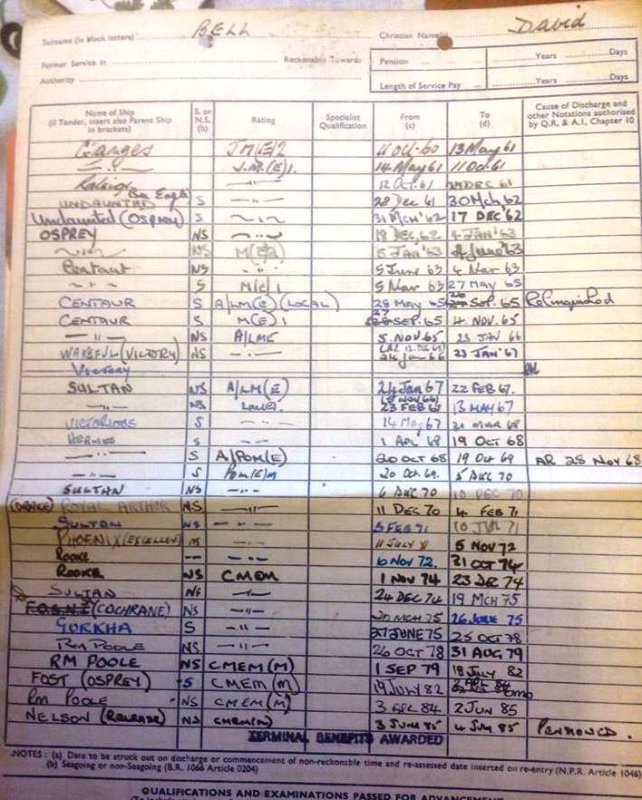 Surname (in block letters) BELL Christian Name(s) David
Former Service in Reckonable Towards Pension Years Days
Authority Length of Service Pay Years Days
Name of Ship (if Tender, insert also Parent Ship in brackets) S. or N.S. (b) Rating Specialist Qualification From (c) To (d) Cause of Discharge and other Notations authorised by Q.R. & A.I., Chapter 10
Ganges J.M.(E)2 11 Oct. 60 13 May 61
—"— J.M.(E)1. 14 May 61 11 Oct. 61
Raleigh —"— 12 Oct. 61 DEC 61
UNDAUNTED S —"— 28 Dec 61 30 Mch 62
Undaunted (OSPREY) S —"— 31 Mch '62 17 DEC '62
OSPREY NS —"— 18 DEC. 62 4 JAN '63
—"— NS M(E) 5 JAN '63 June '63
—"— 5 June 63 4 Nov 63
—"— S M(E)1 5 Nov 63 27 MAY 65
CENTAUR S A/LM(E)(LOCAL) 28 May 65 26 SEP. 65 Relinquished
CENTAUR S M(E)1 27 SEP. 65 4 NOV. 65
—"— NS A/LME 5 NOV. 65 23 JAN 66
WAKEFUL (VICTORY) NS —"— 24 Jan 66 23 JAN '67
VICTORY
SULTAN NS A/LM(E) 24 Jan 67 22 FEB 67.
—"— NS 23 FEB 67 13 MAY 67
VICTORIOUS S —"— 14 May 67 31 MAR 68
HERMES S —"— 1 APL 68 19 OCT 68
—"— S A/POM(E) 20 OCT 68 19 Oct 69 AR 28 NOV 68
—"— S POM(E) 20 Oct. 69. 5 DEC 70
SULTAN NS —"— 6 DEC 70 10 DEC 70
(DRAKE) ROYAL ARTHUR NS —"— 11 DEC 70 4 FEB 71
SULTAN NS —"— 5 FEB 71 10 JUL 71
PHOENIX (EXCELLENT) —"— 11 JULY 71 5 NOV 72
ROOKE —"— —"— 6 NOV 72. 31 OCT 74
ROOKE NS CMEM 1 NOV 74 23 DEC 74
SULTAN NS —"— 24 DEC 74 19 MCH 75
(COCHRANE) NS —"— 20 MCH 75 26 JUNE 75
GURKHA S —"— 27 JUNE 75 25 OCT 78
RM POOLE NS —"— 26 OCT 78 31 AUG 79
RM POOLE NS CMEM (M) 1 SEP 79 18 JULY 82
FOST (OSPREY) S CMEM (M) 19 JULY 82
RM POOLE NS CMEM (M) 3 APL 84 2 JUN 85
NELSON (RELEASE) NS CMEM(M) 3 JUN 85 4 JUN 85 PENSIONED.
TERMINAL BENEFITS AWARDED
NOTES: (a) Date to be struck out on discharge or commencement of non-reckonable time and re-assessed date inserted on re-entry (N.P.R. Article 1046)
(b) Seagoing or non-Seagoing (B.R. 1066 Article 0204)
QUALIFICATIONS AND EXAMINATIONS PASSED FOR ADVANCEMENT